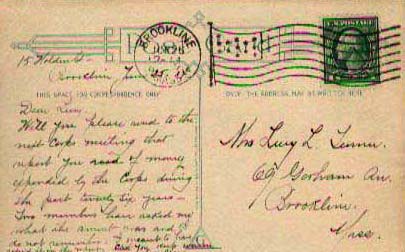 BROOKLINE
U.S. POSTAGE
15 Holden St
Brookline, June
THIS SPACE FOR CORRESPONDENCE ONLY
ONLY THE ADDRESS MAY BE WRITTEN HERE
Dear Lucy
Will you please send to the
next Corps meeting that
report you read of money
expended by the Corps during
the past twenty six years -
Two members have asked me
what the amount was and I
do not remember. I meant to have
Mrs Lucy L.
69 Gorham Av.
Brookline
Mass.